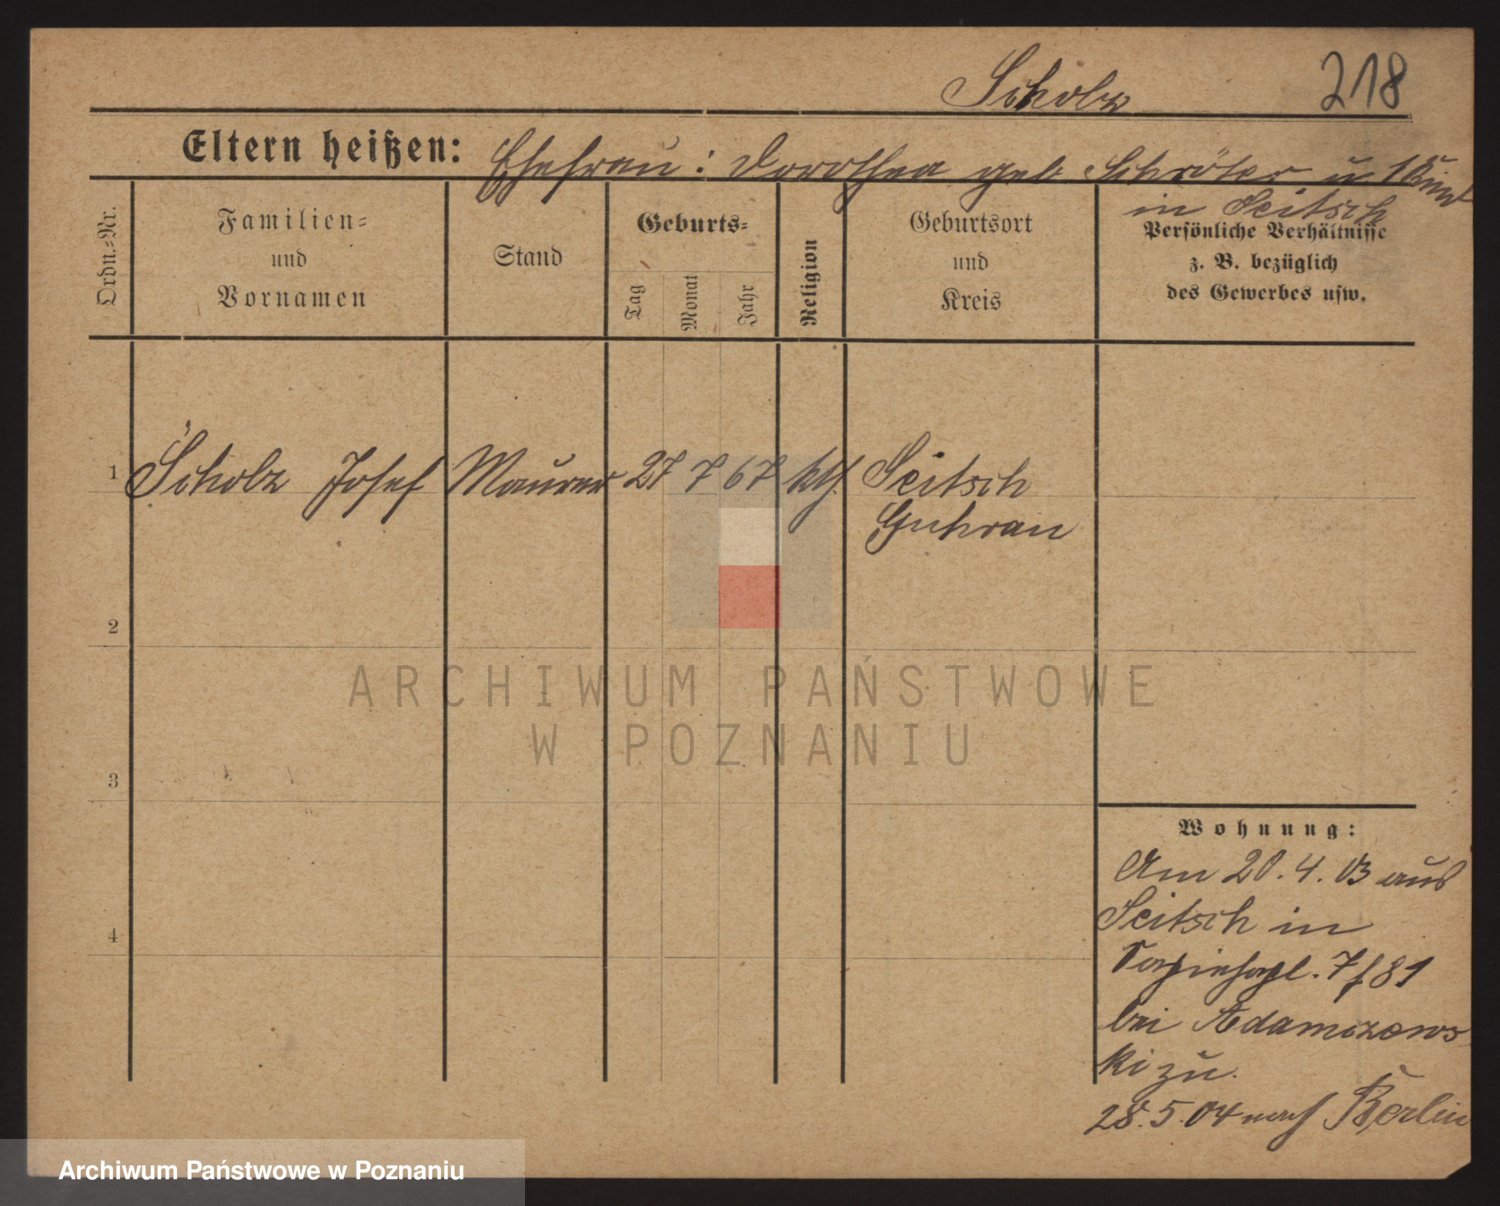 Scholz
218
Eltern heißen: Ehefrau: Dorothea geb. Schröter u 1 Kind
in Seitsch
Ordn.=Nr.
Familien=
und
Vornamen
Stand
Geburts=
Tag
Monat
Jahr
Religion
Geburtsort
und
Kreis
Persönliche Verhältnisse
z. B. bezüglich
des Gewerbes usw.
1 Scholz Josef Maurer 27 7 67 kth. Seitsch
Guhrau
2
ARCHIWUM PAŃSTWOWE
W POZNANIU
3
Wohnung:
Am 20.4.03 aus
Seitsch in
7/81
4
bei Adamczews
ki zu.
28.5.04 nach Berlin
Archiwum Państwowe w Poznaniu